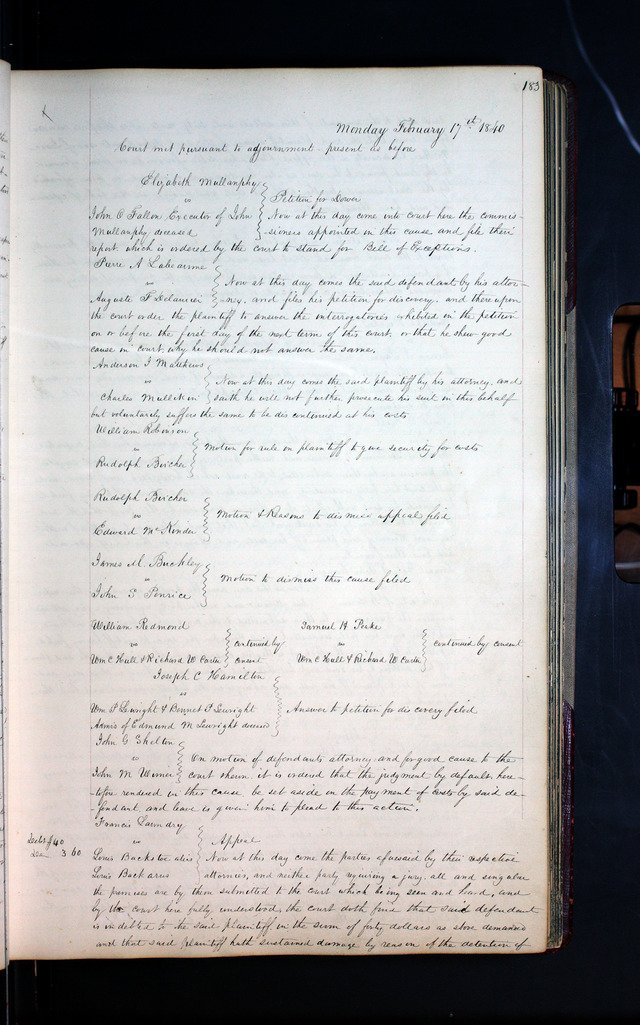 183
Monday February 17th 1840
Court met pursuant to adjournment present as before
Elizabeth Mullanphy
vs
Petition for Dower
John O Fallon Executor of John
Mullanphy deceased
Now at this day come into court here the commis-
sioners appointed in this cause and file their
report which is ordered by the court to stand for Bill of Exceptions.
Pierre A Labeaume
vs
Auguste F Delaurier
Now at this day comes the said defendant by his attor-
-ney and files his petition for discovery, and thereupon
the court order the plaintiff to answer the interrogatories exhibited in the petition
on or before the first day of the next term of this court, or that he shew good
cause in court why he should not answer the same.
Anderson J Matthews
vs
Charles Mullikin
Now at this day comes the said plaintiff by his attorney and
saith he will not further prosecute his suit in this behalf
but voluntarily suffers the same to be discontinued at his costs
William Robinson
vs
Rudolph Bircher
Motion for rule on plaintiff to give security for costs
Rudolph Bircher
vs
Edward McKinder
Motion & Reasons to dismiss appeal filed
James M. Buckley
vs
John S Penrice
Motion to dismiss this cause filed
William Redmond
vs
Wm C Hull & Richard W Carter
continued by
consent
Samuel H Peake
vs
Wm C Hull & Richard W Carter
continued by consent
Joseph C Hamilton
vs
Wm P Sewright & Bennet P Sewright
Admrs of Edmund M Sewright deceased
Answer to petition for discovery filed
John G Shelton
vs
John M Wimer
On motion of defendants attorney and for good cause to the
court shown it is ordered that the judgment by default here-
-tofore rendered in this cause be set aside on the payment of costs by said de-
-fendant and leave is given him to plead to this action.
Francis Laundry
vs
Louis Backster alias
Louis Backarus
Debt $40
Dea 3 60
Appeal
Now at this day come the parties aforesaid by their respective
attornies, and neither party requiring a jury, all and singular
the premises are by them submitted to the court which being seen and heard, and
by the court here fully understood, the court doth find that said defendant
is indebted to the said plaintiff in the sum of forty dollars as above demanded
and that said plaintiff hath sustained damage by reason of the detention of